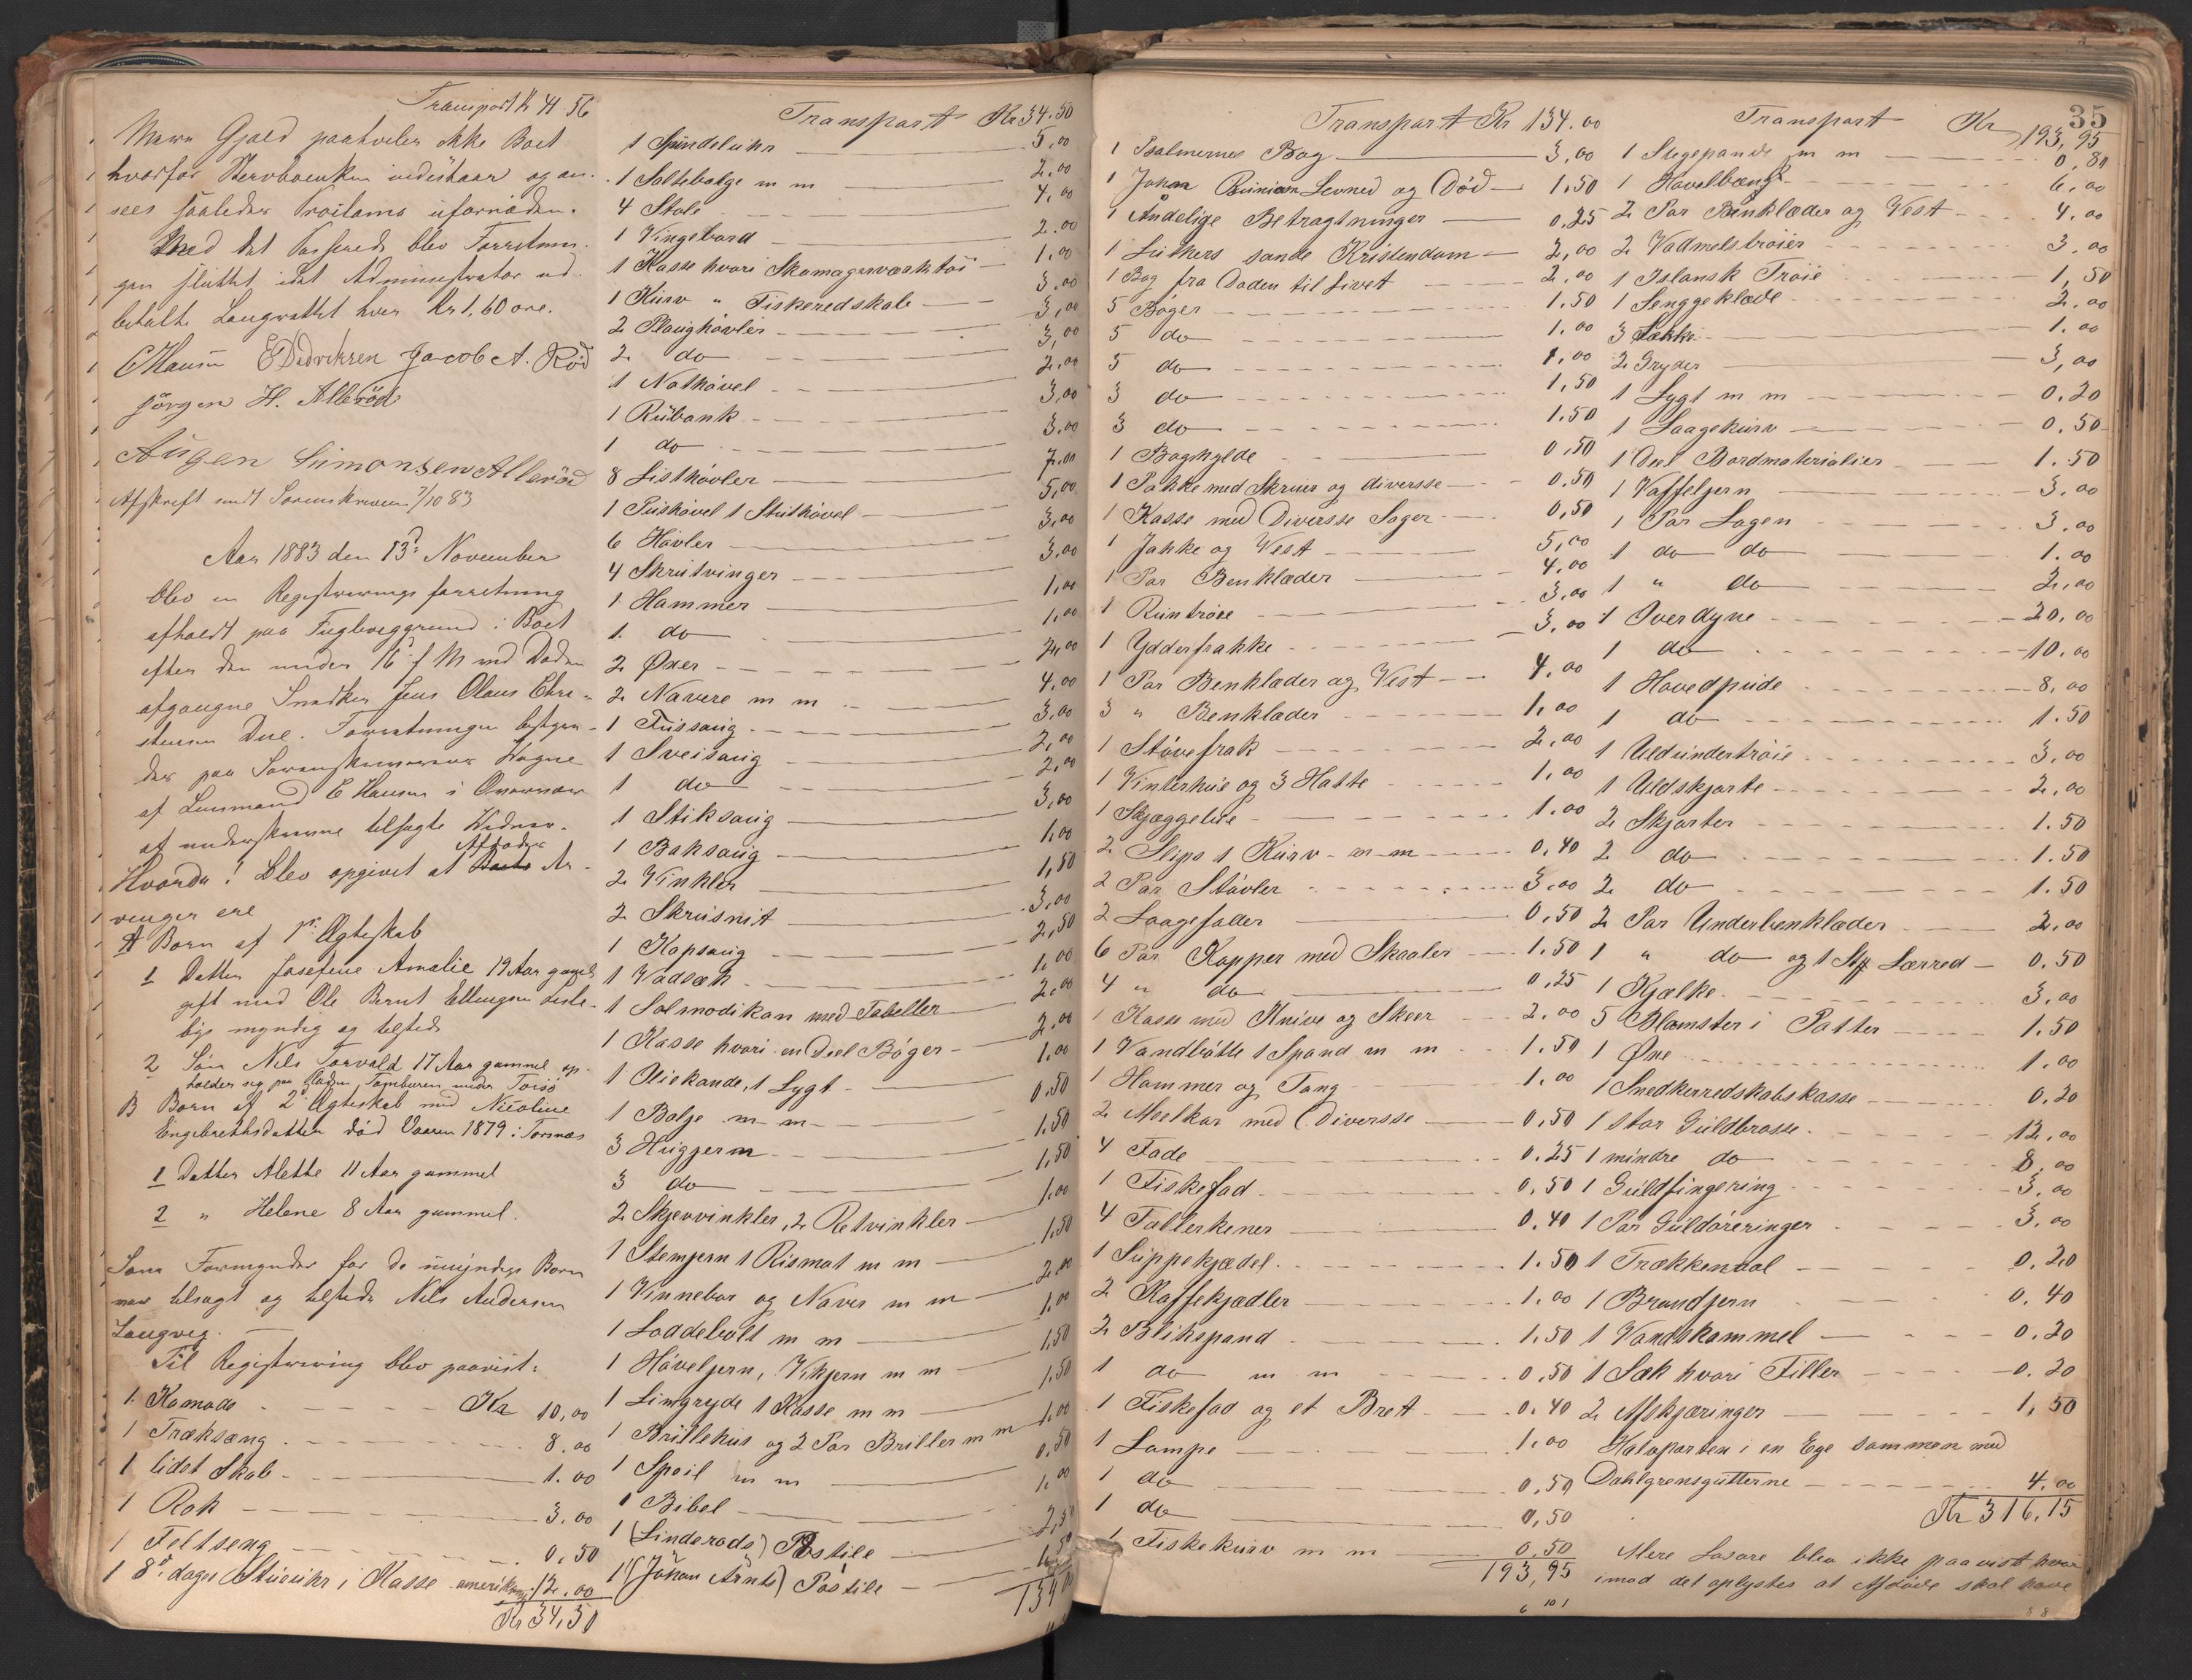 Transport Kr 41.56
Mere Gjæld paahviler ikke Boet
hvorfor Stervboenken vedestaar og an-
sees saaledes Proclama ufornöden.
Med det Passerede blev Forretnin-
gen sluttet idet Administrator ud-
betalte Laugrettet hver Kr 1,60 öre.
CHansen EDidriksen Jacob A. Röd
Jörgen H. Alleröd
Augen Simonsen Alleröd
Afskrift sendt Sorenskriveren 7/10 83
Aar 1883 den 13d: November
blev en Registrerings forretning
afholdt paa Fugleveggrund i Boet
efter den under 16 f M ved Döden
afgangne Snedker Jens Olaus Chri-
stensen Due. Forretningen bestyre-
des paa Sorenskriverens Vegne
af Lensmand C Hansen i Onsö
af underskrevne tilsagte Vidner.
Hvorda! blev opgivet at Boets Afdödes Ar-
vinger ere
A Börn af 1st Ægteskab
1 Datter Josefine Amalie 19 Aar gamel
gift med Ole Bernt Ellingsen
myndig og tilstede
2 Sön Nils Torvald 17 Aar gammel op-
holder sig paa
B Börn af 2d Ægteskab med Nicoline
Engebrethsdatter död Vaaren 1879 i Torsnæs
1 Datter Alette 11 Aar gammel
2 " Helene 8 Aar gammel.
Som Formynder for de umyndige Börn
var tilsagt og tilstede Nils Andersen
Laugveg.
Til Registrering blev paavist:
1 Komode Kr 10,00
1 Træksæng 8.00
1 lidet Skab 1.00
1 Rok 3.00
1 Feltseng 0,50
1 8d: dages Stueuhr i Kasse amerikansk 12.00
Kr 34,50
Transport Kr 34.50
1 Spindeluhr 5,00
1 Saltebalge m m 2.00
4 Stole 4,00
1 Vingebord 2.00
1 Kasse hvori Skomagerværktöi 1.00
1 Kurv " Fiskeredskab 3.00
2 Plaughövler 3,00
2 do 3,00
1 Nothövel 2.00
1 Rubank 3,00
1 do 3.00
8 Listhövler 7.00
1 Pudshövel 1 Stuthövel 5,00
6 Hövler 3,00
4 Skrutvinger 3,00
1 Hammer 1,00
1 do 1,00
2 Øxer 2,00
2 Navere m m 4,00
1 Fussaug 3,00
1 Sveisaug 2,00
1 do 2,00
1 Stiksaug 3,00
1 Baksaug 1,00
2 Vinkler 1,50
2 Skrusnit 3,00
1 Kapsaug 2,50
1 Vadsæk 1.00
1 Salmodikan med Tabeller 2.00
1 Kasse hvori en Deel Böger 2.00
1 Oliekande, 1 Lygt 1.00
1 Balje m m 0.50
3 Hugjern 1.50
3 do 1,50
2 Skjevvinkler, 2 Retvinkler 1,00
1 Stemjern 1 Rismot m m 1,50
1 Vinnebor og Naver m m 2.00
1 Loddebolt m m 1,00
1 Höveljern, Vikjern m m 1,50
1 Limgryde 1 Kasse m m 1,50
1 Brillehus og 2 Par Briller m m 1.00
1 Speil m m 0,50
1 Bibel 1.00
1 (Linderods) Postile 2,50
1 (Johan Arnts) Postile 1,50
134,00
Transport Kr 134.00
1 Psalmernes Bog 3,00
1 Johan Levned og Död 1.50
1 Åndelige Betragtninger 0.25
1 Luthers sande Kristendom 2,00
1 Bog fra Döden til Livet 2.00
5 Böger 1.50
5 do 1.00
5 do 1.00
3 do 1,50
3 do 1.50
1 Boghylde 0,50
1 Pakke med Skruer og diverse 0.50
1 Kasse med Diversse Sager 0,50
1 Jakke og Vest 5,00
1 Par Benklæder 4.00
1 Runtröie 3,00
1 Ydderfrakke 3.00
1 Par Benklæder og Vest 4.00
3 " Benklæder 1.00
1 Stövefrak 2.00
1 Vinterhue og 3 Hatte 1.00
1 Skjæggehue 1.00
2 Slips 1 Kurv m m 0,40
2 Par Stövler 3.00
2 Laagefader 0,50
6 Par Kopper med Skaaler 1.50
4 " do 0,25
1 Kasse med Knive og Skeer 2.00
1 Vandbötte 1 Spand m m 1.50
1 Hammer og Tang 1.00
2 Melkar med Diversse 0,50
4 Fade 0.25
1 Fiskefad 0,50
4 Tallerkener 0,40
1 Suppekjædel 1.50
2 Kaffekjædler 1.00
2 Blikspand 1.50
1 do m m 0,50
1 Fiskefad og et Bret 0.40
1 Lampe 1.00
1 do 0,50
1 do 0,50
1 Fiskekurv m m 0,50
193,95
Transport Kr 193,95
35
1 Stegepande m m 0,80
1 Hovelbænk 6,00
2 Par Benklæder og Vest 4,00
2 Vadmelströier 3,00
1 Islansk Tröie 1,50
1 Senggeklæde 2.00
3 Sække 1.00
2 Gryder 3,00
1 Lygt m m 0.20
1 Laagekurv 0.50
1 Deel Bordmaterialier 1.50
1 Vaffeljern 3.00
1 Par Lagen 3.00
1 do do 1.00
1 " do 2,00
1 Overdyne 20,00
1 do 10.00
1 Hovedpude 8,00
1 do 1.50
1 Uldundertröie 3.00
1 Uldskjorte 2.00
2 Skjorter 1.50
2 do 1.50
2 do 1.50
2 Par Underbenklæder 2.00
1 " do og 1 Stk Lærred 0.50
1 Kjælke 3,00
5 Blomster i Potter 1.50
1 Øxe 1.00
1 Snedkerredskabskasse 0.20
1 stor Guldbrosse 12,00
1 mindre do 8,00
1 Guldfingering 3,00
1 Par Guldöreringer 3.00
1 Trækkenaal 0.20
1 Brandjern 0.40
1 Vandskammel 0.20
1 Sæk hvori Filler 0.20
2 Afskjæringer 1,50
Halvparten i en Ege sammen med
Dahlgrensgutterne 4.00
Kr 316,15
Mere Løsøre blev ikke paavist hvor
imod det oplystes at Afdöde skal have
6 10 1
88